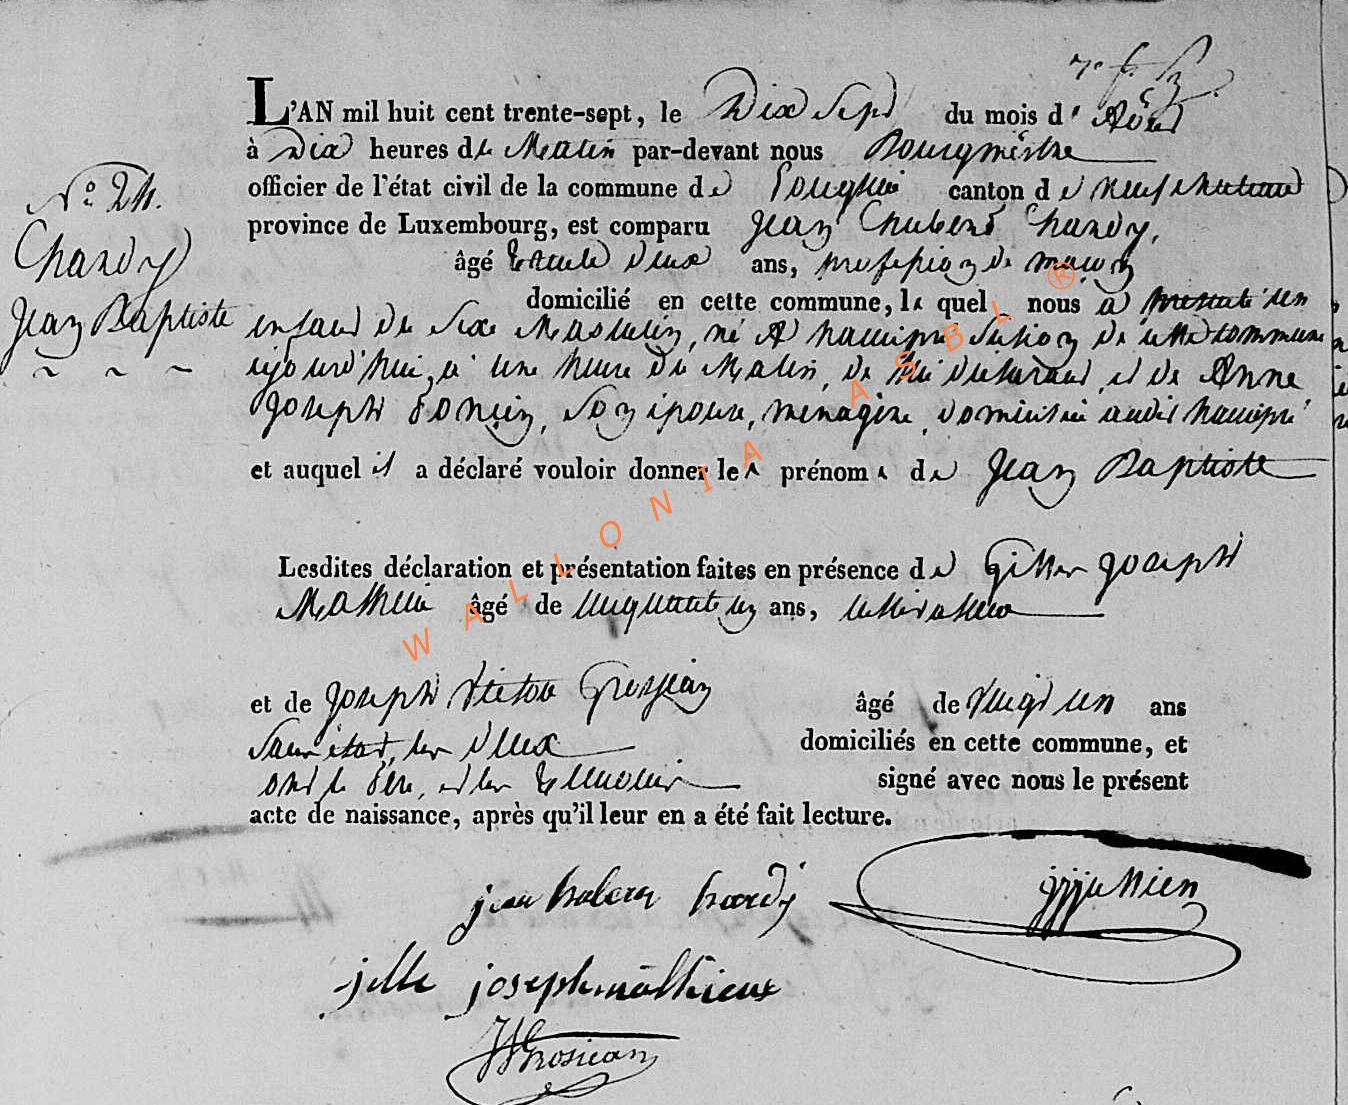 L'AN mil huit cent trente-sept, le Dix Sept du mois d' Août
à Dix heures du Matin par-devant nous Bourgmestre
officier de l'état civil de la commune de canton de neufchateau
province de Luxembourg, est comparu Jean Hubert Chardy,
âgé trente deux ans, profession de maçon
domicilié en cette commune, le quel nous a présenté un
enfant du Sexe Masculin, né A hamipré Section de cette commune
aujourd'hui, à une heure du Matin, de lui déclarant, et de Anne
Joseph Poncin, Son épouse, ménagère, domiciliée audit hamipré
et auquel il a déclaré vouloir donner les prénoms de Jean Baptiste
Lesdites déclaration et présentation faites en présence de Gilles Joseph
Mathieu âgé de ans, cultivateur
et de Joseph Victor Grosjean âgé de vingt un ans
Sans état, les deux domiciliés en cette commune, et
ont le Père, et les témoins signé avec nous le présent
acte de naissance, après qu'il leur en a été fait lecture.
N° 24.
Chardy
Jean Baptiste
jean hardy
jille joseph mathieux
Grosjean
WALLONIA ASBL ®